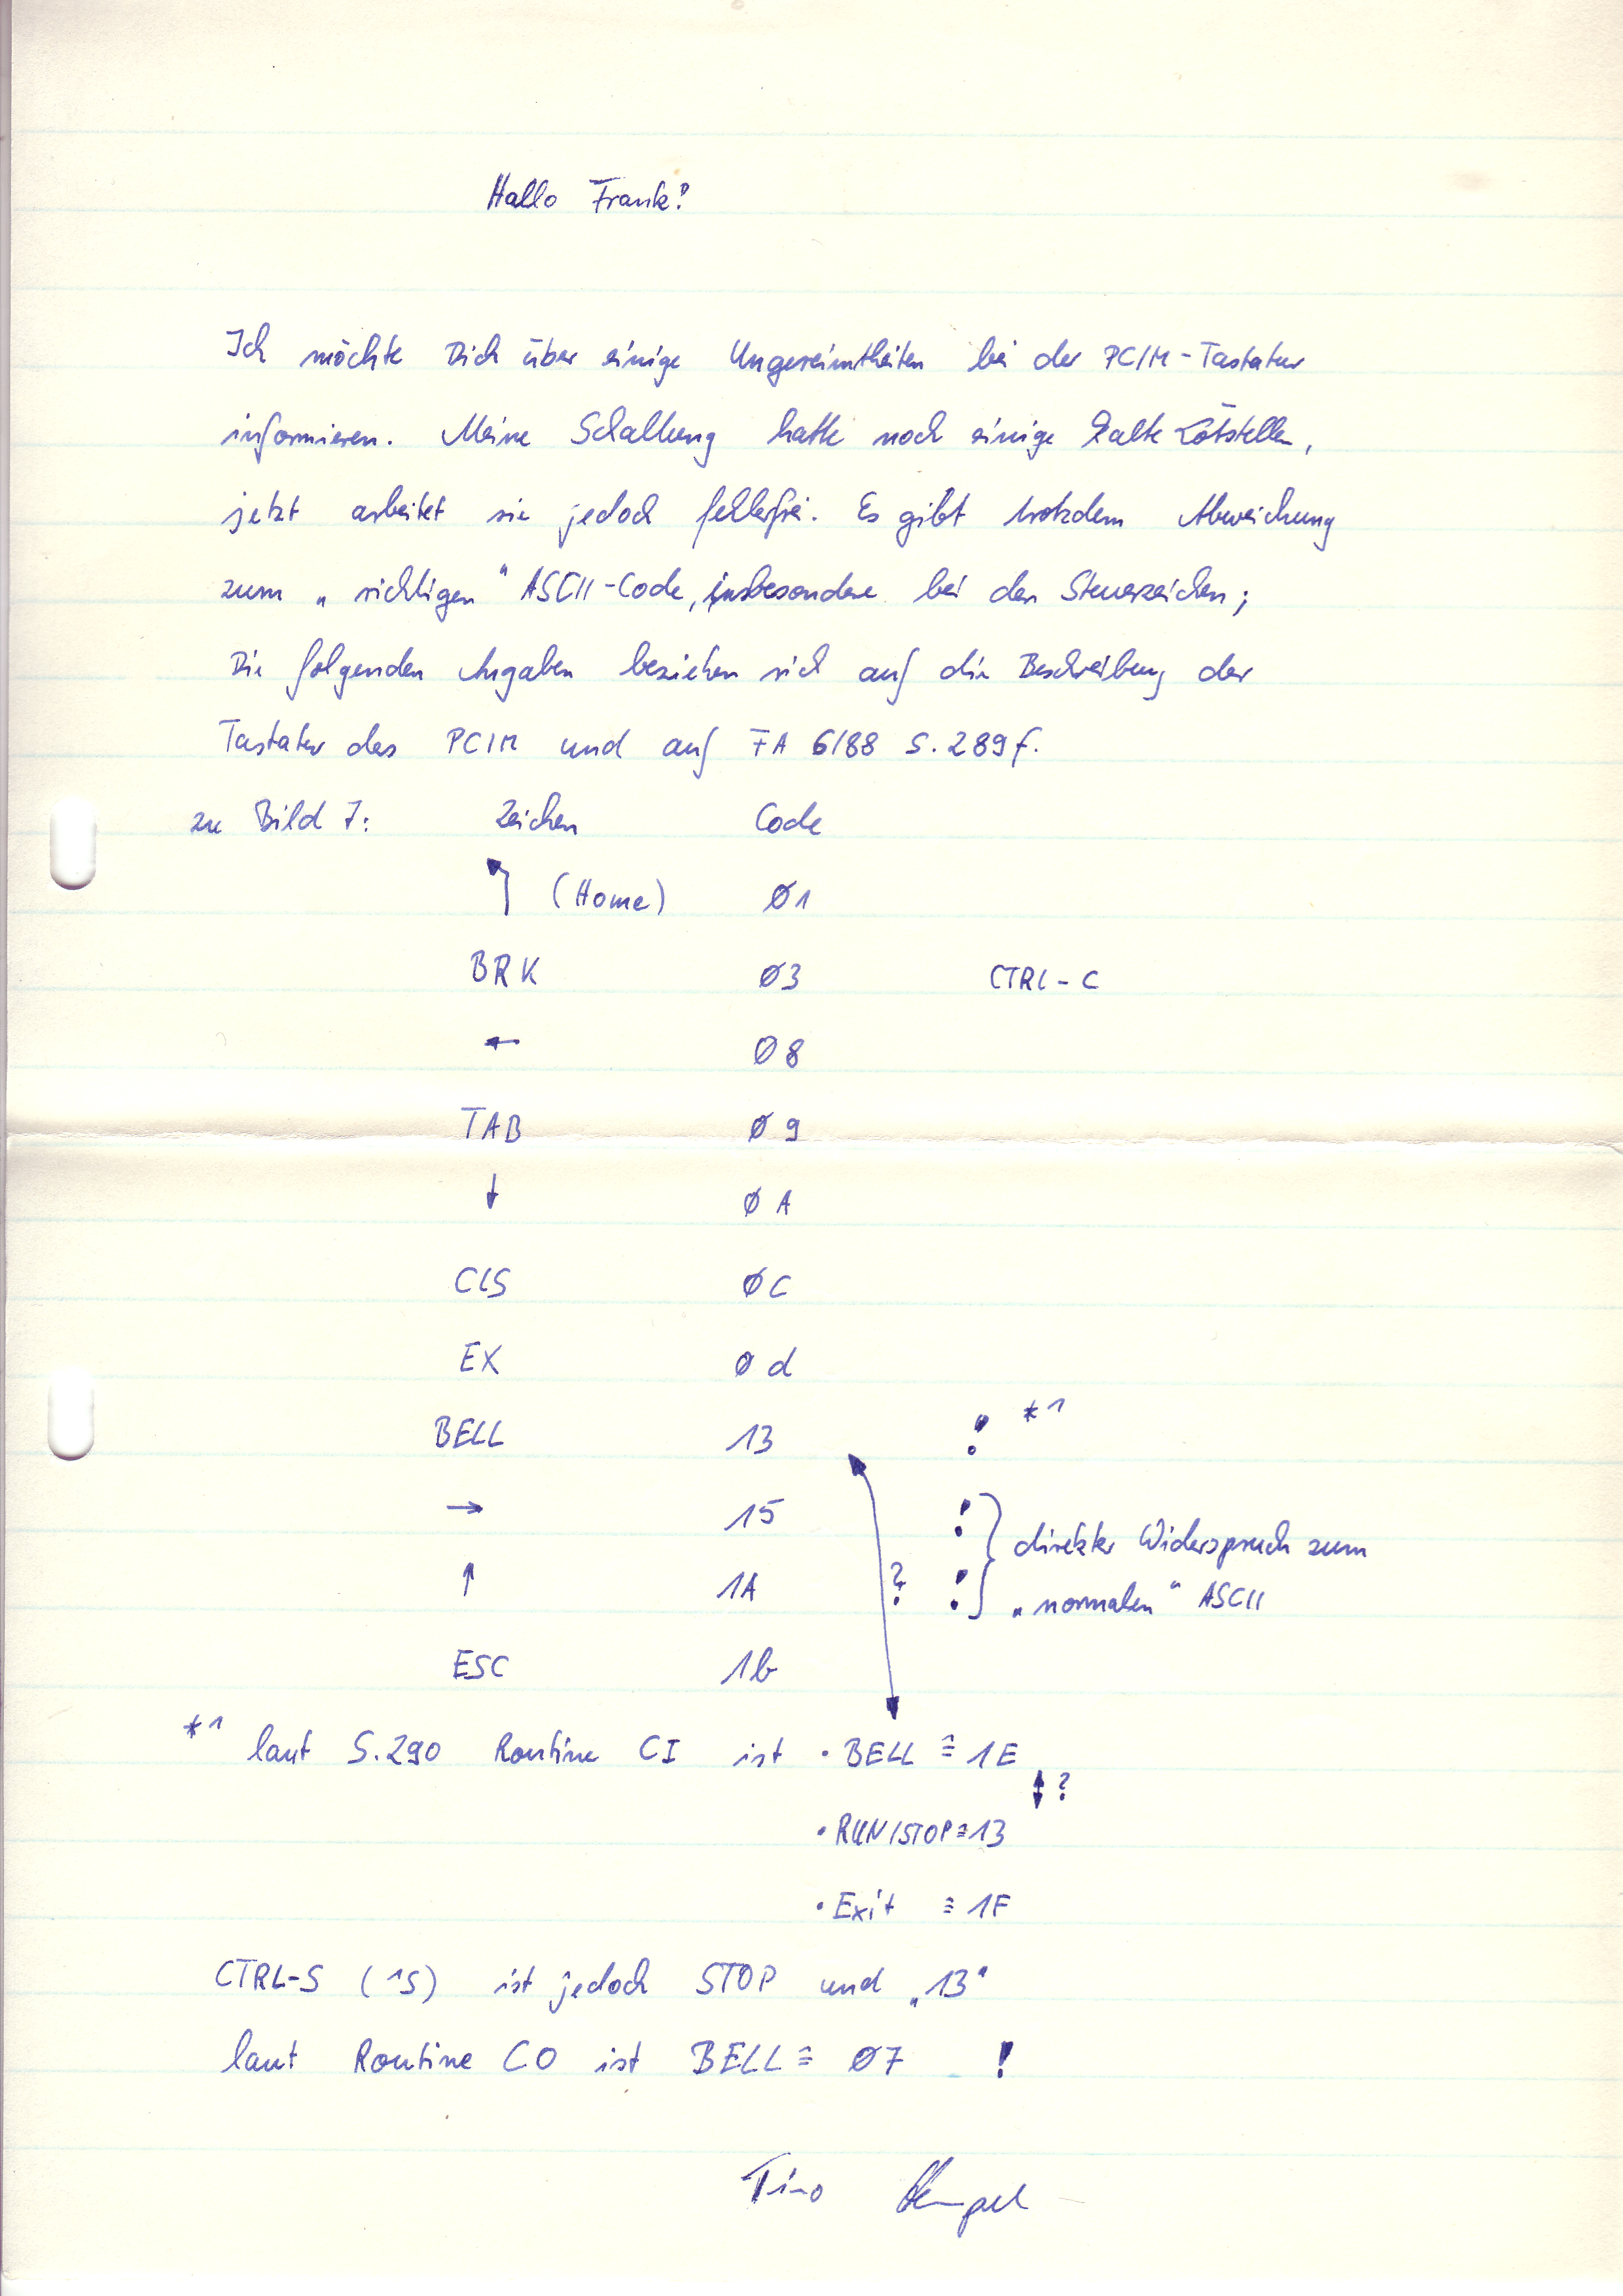 Hallo Frank!
Ich möchte Dich über einige Ungereimtheiten bei der PC/M-Tastatur
informieren. Meine Schaltung hatte noch einige kalte Lötstellen,
jetzt arbeitet sie jedoch fehlerfrei. Es gibt trotzdem Abweichung
zum „richtigen“ ASCII-Code, insbesondere bei den Steuerzeichen;
Die folgenden Angaben beziehen sich auf die Beschreibung der
Tastatur des PC/M und auf FA 6/88 S. 289f.
zu Bild 7: Zeichen Code
↰ (Home) Ø1
BRK Ø3 CTRL-C
← Ø8
TAB Ø9
↓ ØA
ClS ØC
EX Ød
BELL 13 ! *1
→ 15 ! direkter Widerspruch zum
↑ 1A ? ! „normalen“ ASCII
ESC 1b
*1 laut S.290 Routine CI ist • BELL ≙ 1E
↕ ?
• RUN/STOP ≙ 13
• Exit ≙ 1F
CTRL-S (^S) ist jedoch STOP und „13“
laut Routine CO ist BELL ≙ Ø7 !
Tino Hempel